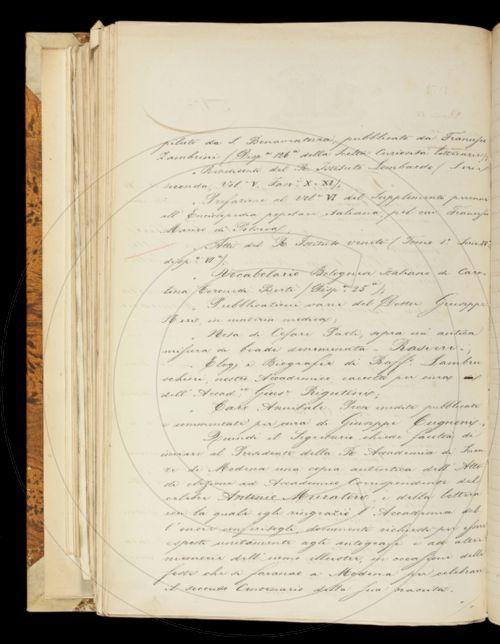 pilato da S. Bonaventura, pubblicato da Francesco
Zambrini (Disp.ᵃ 126ᵃ della Scelta Curiosità Letterarie);
Rendiconti del R. Istituto Lombardo (Serie
seconda, Vol.ᵉ V. Fasc. X-XI);
Prefazione al Vol.ᵉ VI del Supplemento perenne
all'Enciclopedia popolare italiana, pel
Mauro di Polvica;
Atti del R. Istituto veneto (Tomo 1° Serie IVᵃ
disp.ᵃ VIᵃ);
Vocabolario Bolognese italiano di Caro-
lina Coronedi Berti (Disp.ᵃ 25ᵃ);
Pubblicazioni varie del Dottor Giuseppe
in materia medica;
Nota di Cesare Paoli, sopra un'antica
misura di biade denominata
Elogi e Biografie di Raff.ᵉ Lambru-
schini, nostro Accademico, raccolte per cura
dell'Accad.ᶜᵒ Gius.ᵉ Rigutini;
Caro Annibale Prose inedite pubblicate
e annotate per cura di Giuseppe Cugnoni.
Quindi il Segretario chiede facoltà di
inviare al Presidente della R. Accademia di Scien-
ze di Modena una copia autentica dell'Atto
di elezione ad Accademico Corrispondente del
celebre Antonio Muratori, e della lettera
con la quale egli ringraziò l'Accademia del-
l'onore conferitogli, documenti richiesti per essere
esposti unitamente agli autografi e ad altre
memorie dell'uomo illustre, in occasione delle
feste che si faranno a Modena per celebrare
il secondo Centenario della sua nascita.